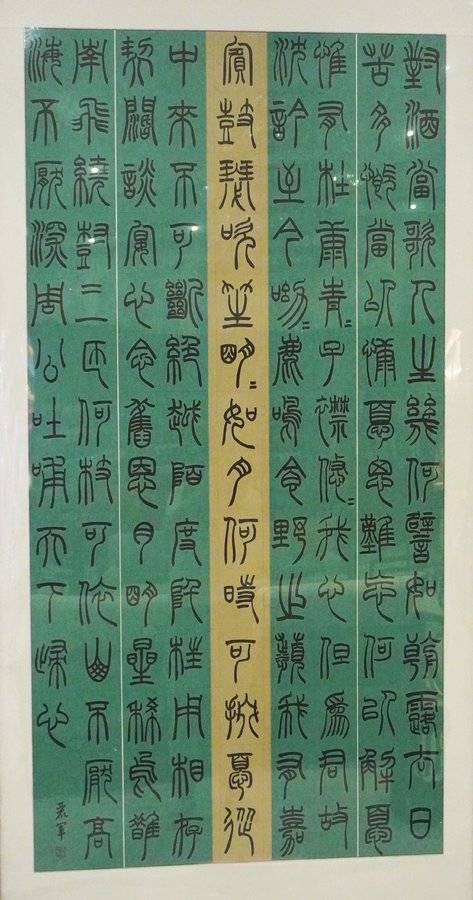 對酒當歌人生幾何譬如朝露去日
苦多慨當以慷憂思難忘何以解憂
惟有杜康青〻子襟悠〻我心但爲君故
沈吟至今呦〻鹿鳴食野之蘋我有嘉
賓鼓瑟吹笙明〻如月何時可掇憂從
中來不可斷絕越陌度阡枉用相存
契闊談宴心念舊恩月明星稀烏鵲
南飛繞樹三匝何枝可依山不厭高
海不厭深周公吐哺天下歸心